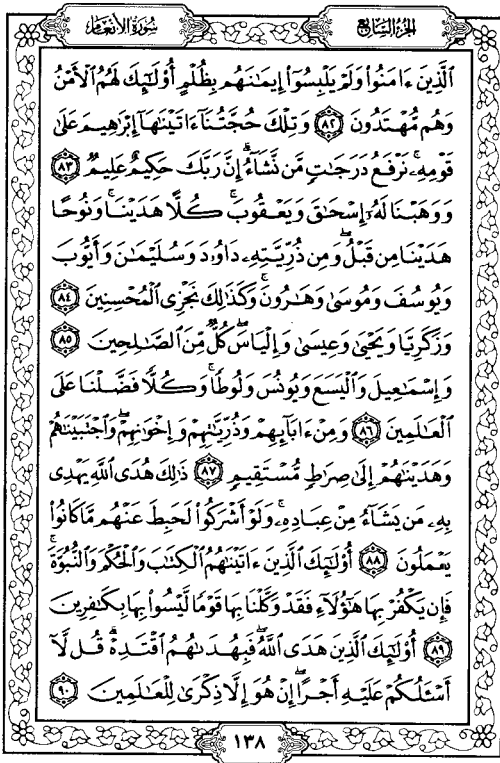 سُورَةُ الأَنْعَامِ
الجُزْءُ السَّابِعُ
الَّذِينَ ءَامَنُوا۟ وَلَمْ يَلْبِسُوٓا۟ إِيمَٰنَهُم بِظُلْمٍ أُو۟لَٰٓئِكَ لَهُمُ ٱلْأَمْنُ
وَهُم مُّهْتَدُونَ ٨٢ وَتِلْكَ حُجَّتُنَآ ءَاتَيْنَٰهَآ إِبْرَٰهِيمَ عَلَىٰ
قَوْمِهِۦ ۚ نَرْفَعُ دَرَجَٰتٍ مَّن نَّشَآءُ ۗ إِنَّ رَبَّكَ حَكِيمٌ عَلِيمٌ ٨٣
وَوَهَبْنَا لَهُۥٓ إِسْحَٰقَ وَيَعْقُوبَ ۚ كُلًّا هَدَيْنَا ۚ وَنُوحًا
هَدَيْنَا مِن قَبْلُ ۖ وَمِن ذُرِّيَّتِهِۦ دَاوُۥدَ وَسُلَيْمَٰنَ وَأَيُّوبَ
وَيُوسُفَ وَمُوسَىٰ وَهَٰرُونَ ۚ وَكَذَٰلِكَ نَجْزِى ٱلْمُحْسِنِينَ ٨٤
وَزَكَرِيَّا وَيَحْيَىٰ وَعِيسَىٰ وَإِلْيَاسَ ۖ كُلٌّ مِّنَ ٱلصَّٰلِحِينَ ٨٥
وَإِسْمَٰعِيلَ وَٱلْيَسَعَ وَيُونُسَ وَلُوطًا ۚ وَكُلًّا فَضَّلْنَا عَلَى
ٱلْعَٰلَمِينَ ٨٦ وَمِنْ ءَابَآئِهِمْ وَذُرِّيَّٰتِهِمْ وَإِخْوَٰنِهِمْ ۖ وَٱجْتَبَيْنَٰهُمْ
وَهَدَيْنَٰهُمْ إِلَىٰ صِرَٰطٍ مُّسْتَقِيمٍ ٨٧ ذَٰلِكَ هُدَى ٱللَّهِ يَهْدِى
بِهِۦ مَن يَشَآءُ مِنْ عِبَادِهِۦ ۚ وَلَوْ أَشْرَكُوا۟ لَحَبِطَ عَنْهُم مَّا كَانُوا۟
يَعْمَلُونَ ٨٨ أُو۟لَٰٓئِكَ ٱلَّذِينَ ءَاتَيْنَٰهُمُ ٱلْكِتَٰبَ وَٱلْحُكْمَ وَٱلنُّبُوَّةَ ۚ
فَإِن يَكْفُرْ بِهَا هَٰٓؤُلَآءِ فَقَدْ وَكَّلْنَا بِهَا قَوْمًا لَّيْسُوا۟ بِهَا بِكَٰفِرِينَ
٨٩ أُو۟لَٰٓئِكَ ٱلَّذِينَ هَدَى ٱللَّهُ ۖ فَبِهُدَىٰهُمُ ٱقْتَدِهْ ۗ قُل لَّآ
أَسْـَٔلُكُمْ عَلَيْهِ أَجْرًا ۖ إِنْ هُوَ إِلَّا ذِكْرَىٰ لِلْعَٰلَمِينَ ٩٠
١٣٨